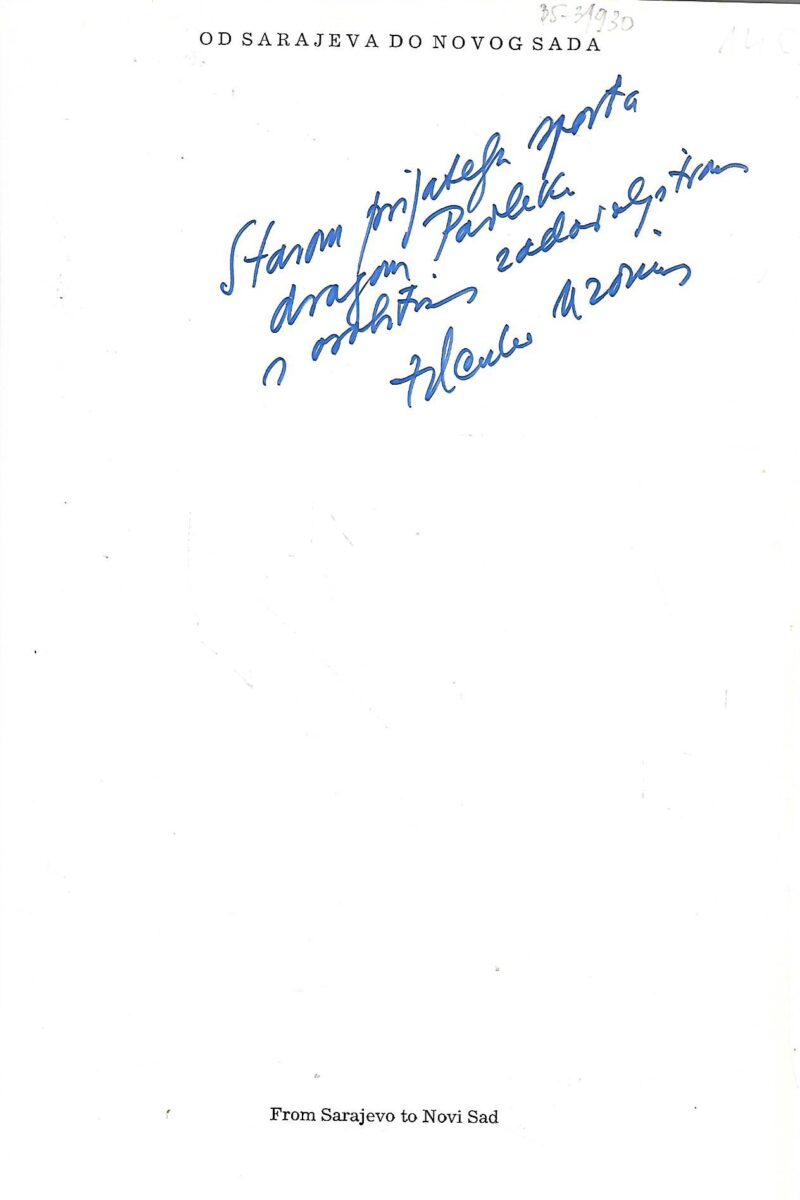 35-31930
OD SARAJEVA DO NOVOG SADA
Starom prijatelju sporta
dragom Pavleku
s osobitim zadovoljstvom
Zdenko Uzorinac
From Sarajevo to Novi Sad